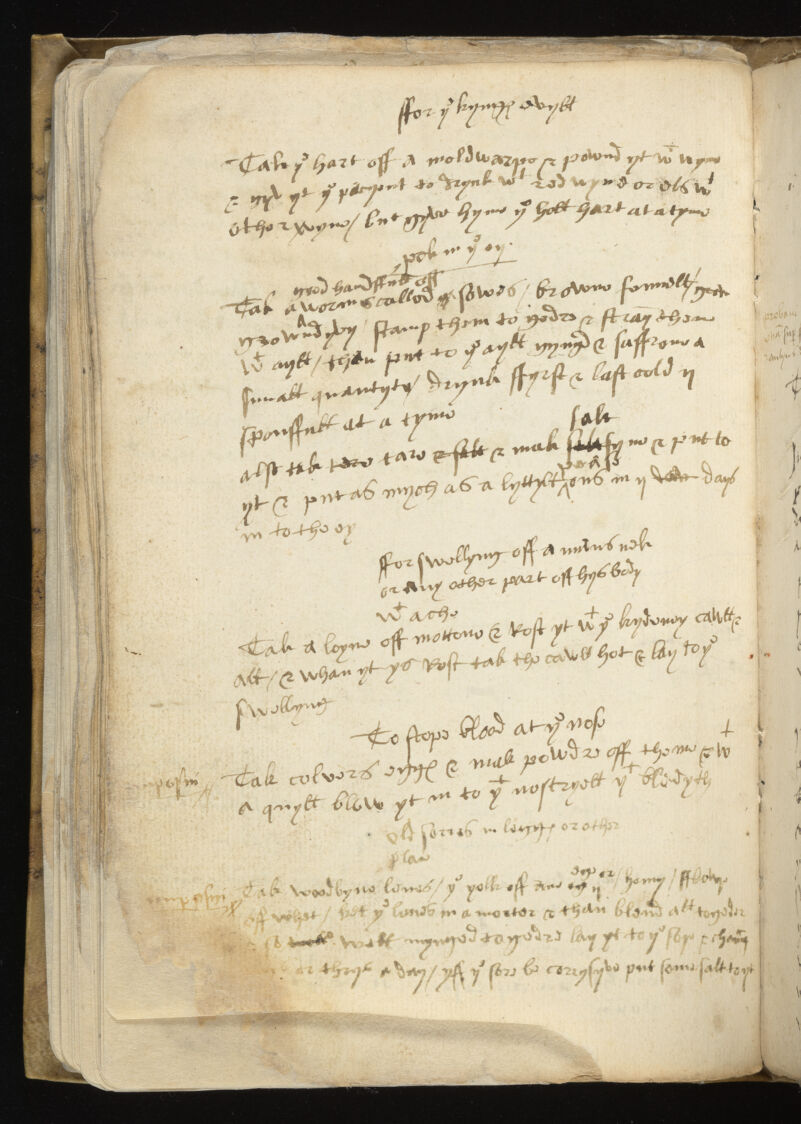 ffor yͤ kyngꝭ evyll
Tak yͤ hart off a moldwarpe & pownd yt wᵗ wyne
& gyv yt yͤ pacyent to drynk wᵗ red wyne or els wᵗ
other wyne / but gyve hyme yͤ holl hart at a tyme
pok in yͤ ey
good handffull off
Tak a worms called sowes / browne fennell /
grownd yvy / stamp them to gedre & strayne theme
wᵗ ayll / than put to yͤ ayll gyngͬ & saffrone a
small quantyte / drynk ffyrst & last cold ij
sponffull at a tyme
salt
also tak tere tare & salt & mak fyne & put to
pease
yt & put as mych as a lyttyll ons in ij days
in to the ey
ffor swellyng off a mans nek
or any other part off hys body
wᵗ ache
Tak a loyne off mottone & rost yt wᵗ yͤ kydeney cawll &
all / & whan yt ys rost tak the cawll hot & lay to yͤ
swellyng
To stope blood at yͤ nose
Tak colvers eggꝭ & mak powdre off theme & wᵗ
a quyll blow yt in to yͤ nostryell yᵗ bledyth
old sorres in leggꝭ or other
place
Tak woodbyne leves / yͤ yolk off ane egge or ij / hony / fflowre
off whet / bet yͤ leves in a morter & than blend all togeder
& so well mynged togedre lay yt to yͤ sore & chang
or thryse a day / yff yͤ sore be corrysyve put some salt to yt